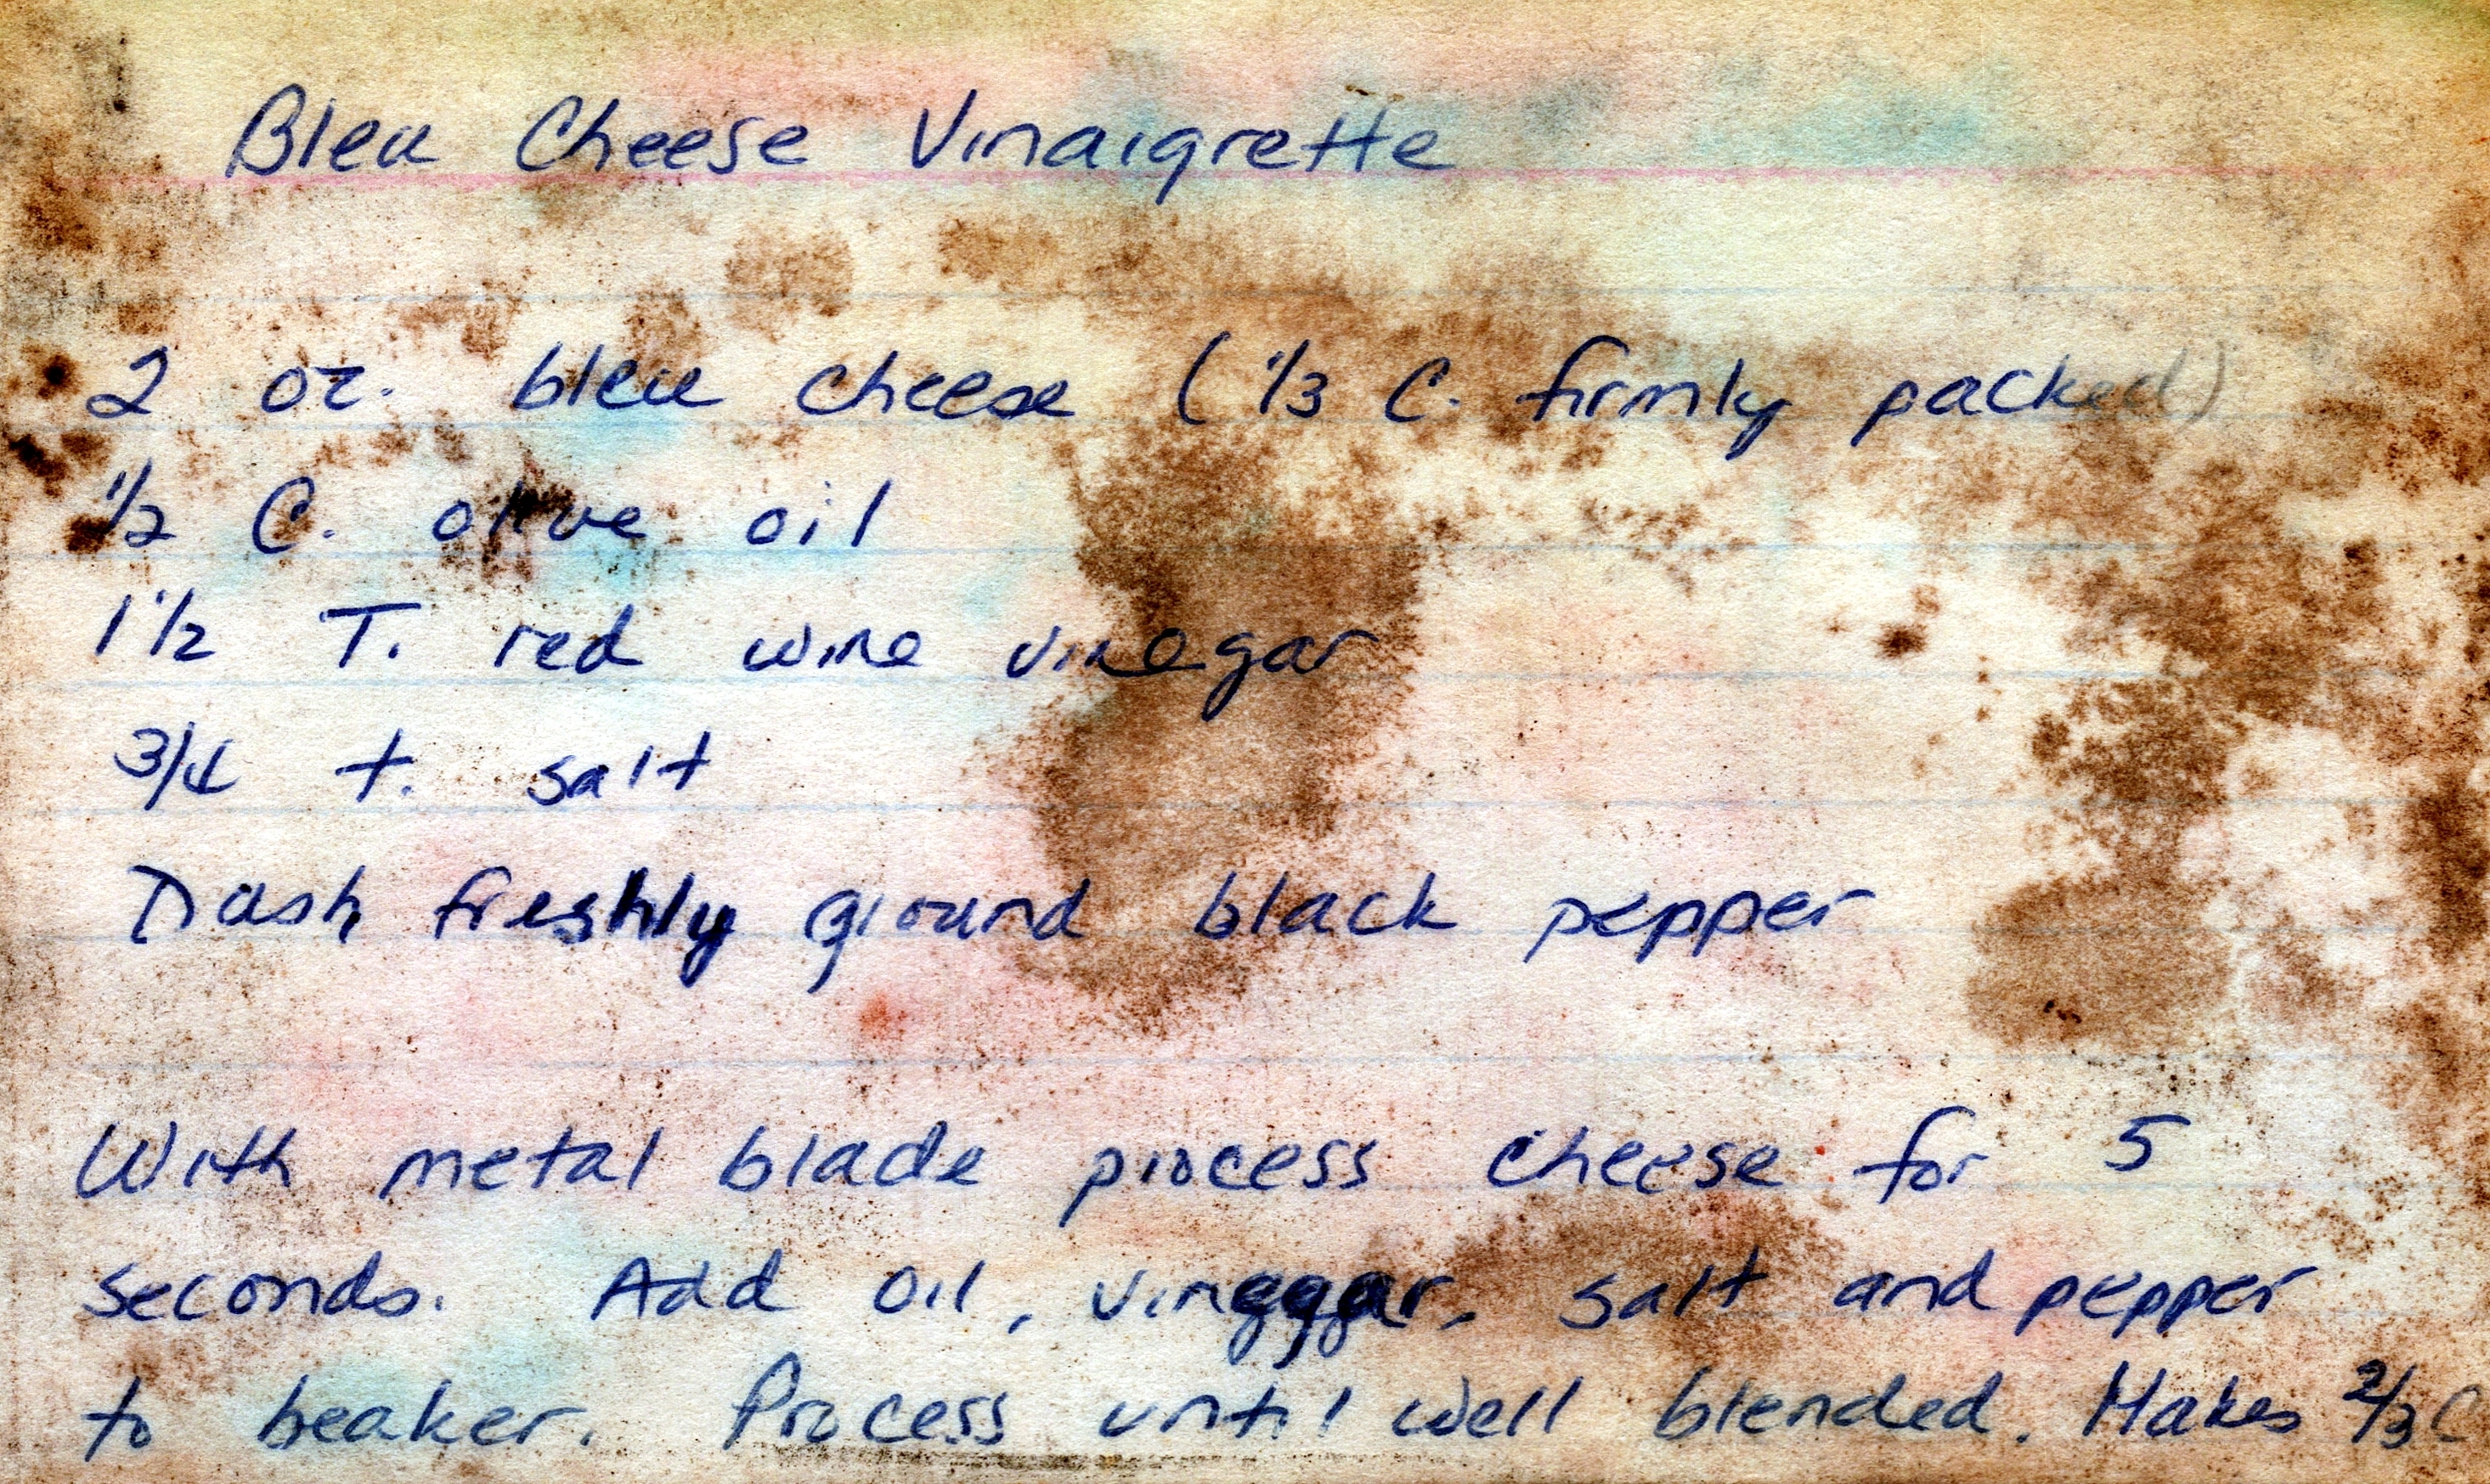 Bleu Cheese Vinaigrette
2 oz. bleu cheese (1/3 C. firmly packed)
1/2 C. olive oil
1 1/2 T. red wine vinegar
3/4 t. salt
Dash freshly ground black pepper
With metal blade process cheese for 5
seconds. Add oil, vinegar, salt and pepper
to beaker. Process until well blended. Makes 2/3 C